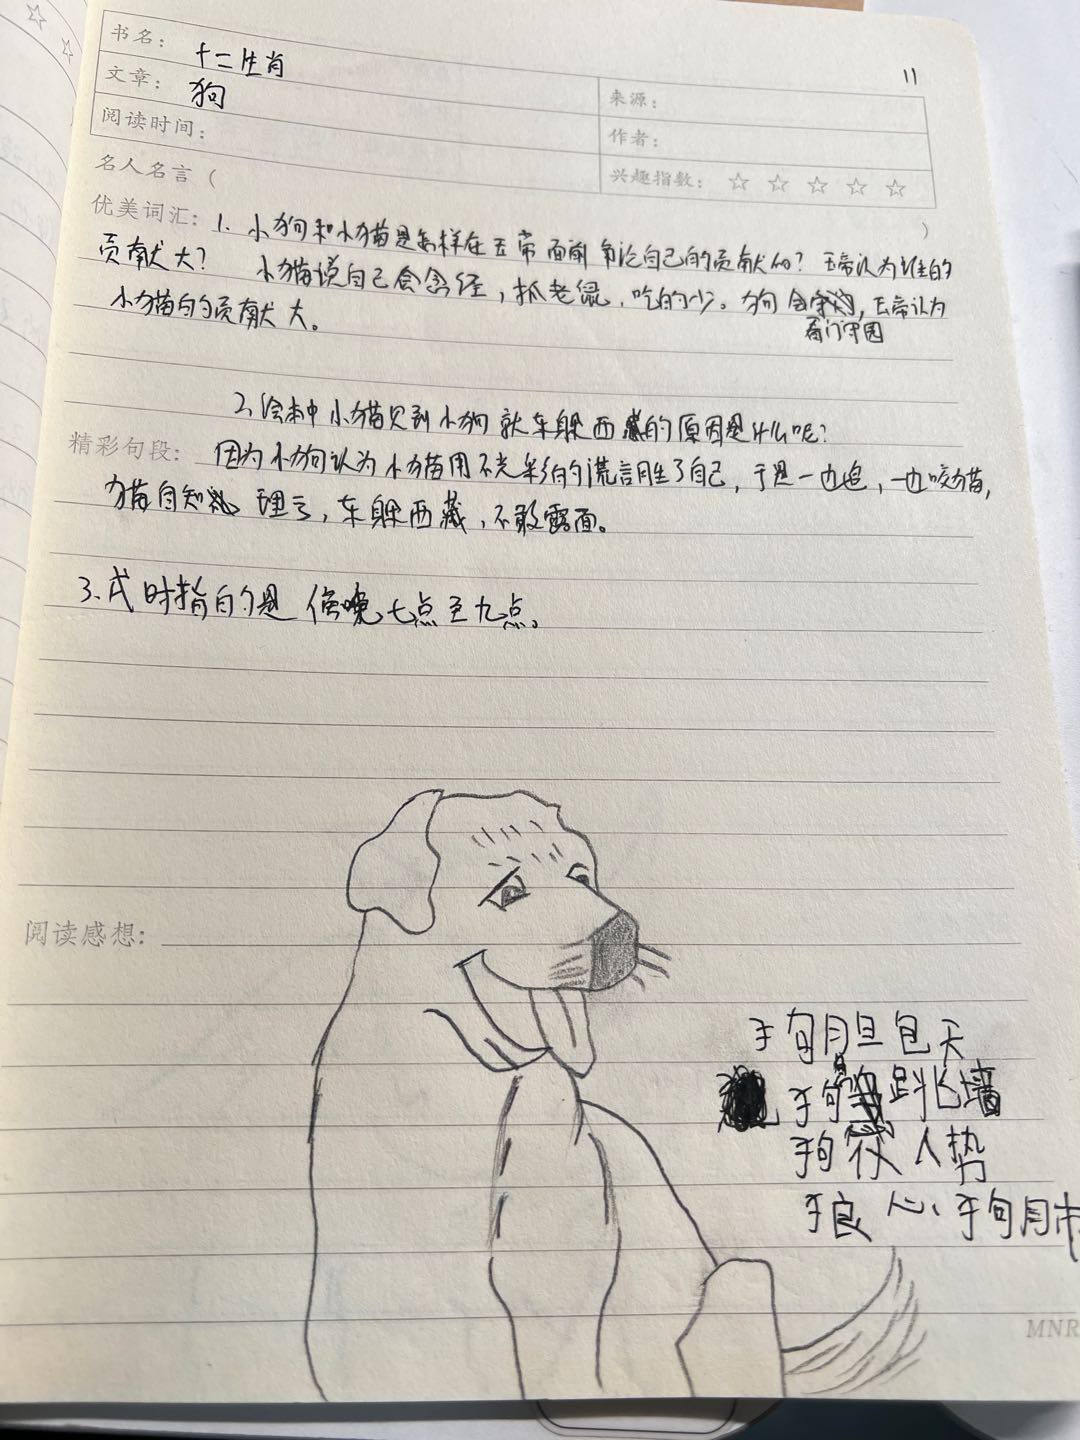 11
书名: 十二生肖
文章: 狗
来源:
阅读时间:
作者:
名人名言 (
兴趣指数: ☆ ☆ ☆ ☆ ☆
)
优美词汇: 1. 小狗和小猫是怎样在玉帝面前争论自己的贡献的? 玉帝认为谁的
贡献大? 小猫说自己会念经,抓老鼠,吃的少。狗看门守园,玉帝认为
小猫的贡献大。
2. 绘本中小猫见到小狗就东躲西藏的原因是什么呢?
精彩句段: 因为小狗认为小猫用不光彩的谎言胜了自己,于是一边追,一边咬猫,
猫自知理亏,东躲西藏,不敢露面。
3. 戌时指的是傍晚七点至九点。
阅读感想:
狗胆包天
狗急跳墙
狗仗人势
狼心狗肺
MNR